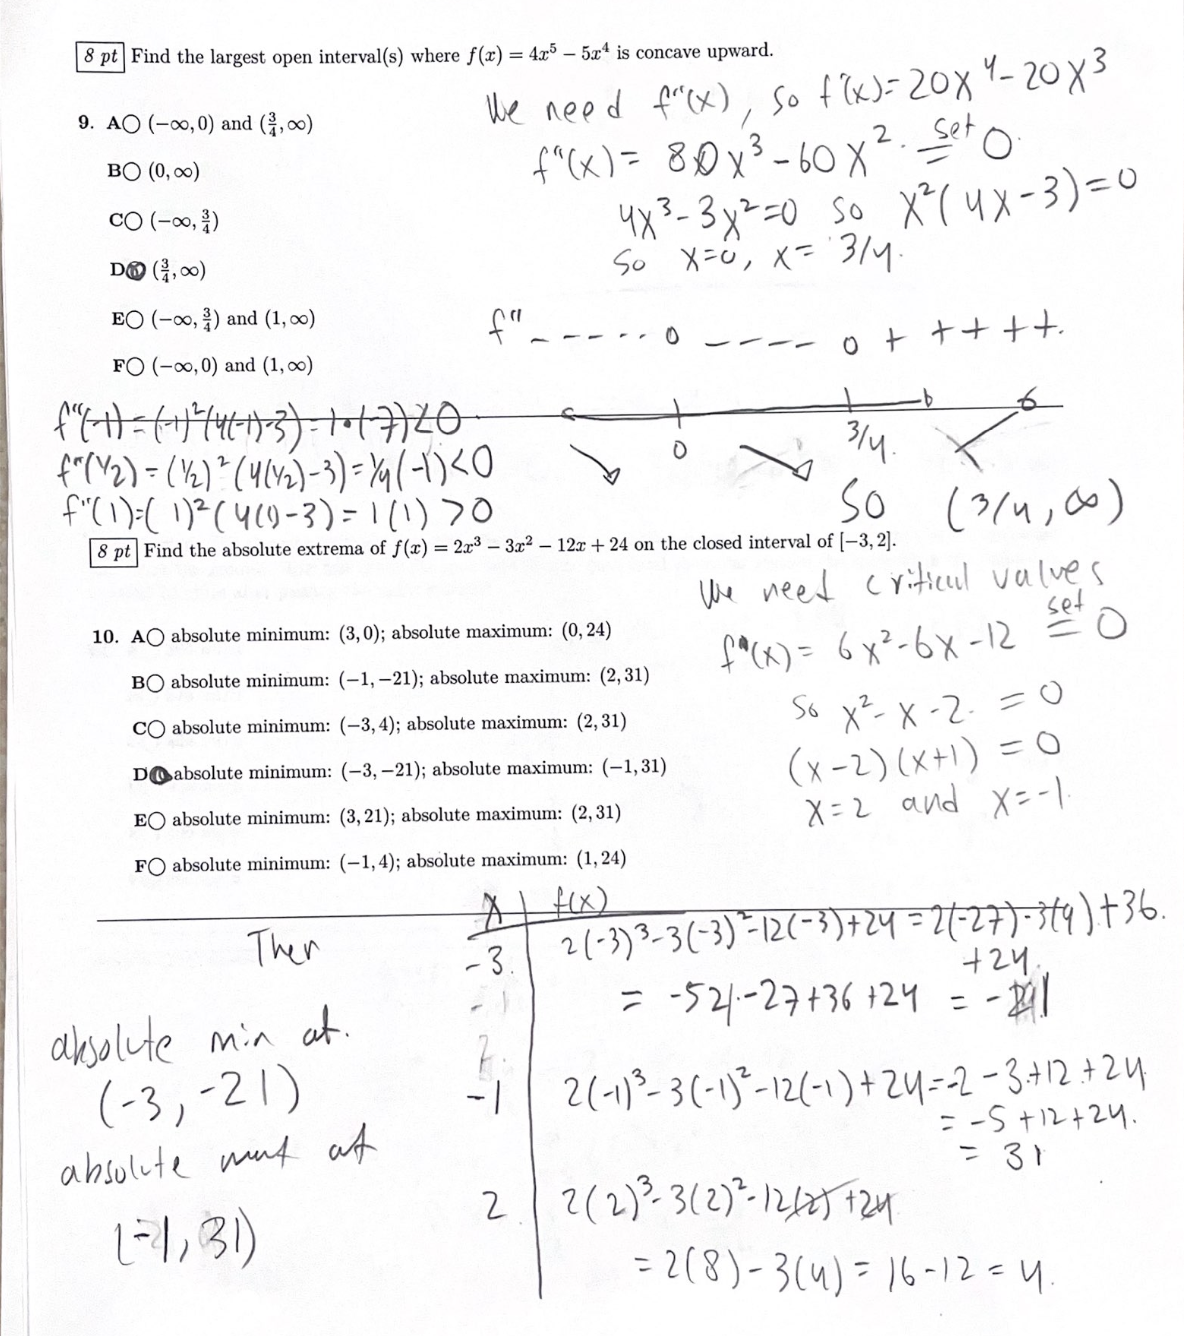 8 pt Find the largest open interval(s) where f(x) = 4x⁵ − 5x⁴ is concave upward.
We need f"(x), so f'(x) = 20x⁴ - 20x³
9. A○ (−∞, 0) and (3/4, ∞)
f"(x) = 80x³ - 60x². set = 0.
B○ (0, ∞)
4x³ - 3x² = 0 so x²(4x - 3) = 0
C○ (−∞, 3/4)
So x=0, x = 3/4.
D● (3/4, ∞)
E○ (−∞, 3/4) and (1, ∞)
f" - - - - - - 0 - - - - 0 + + + + +.
F○ (−∞, 0) and (1, ∞)
f"(-1) = (-1)²(4(-1)-3) = 1•(-7) < 0
0 3/4.
f"(1/2) = (1/2)²(4(1/2)-3) = 1/4(-1) < 0
f"(1) = (1)²(4(1)-3) = 1(1) > 0
So (3/4, ∞)
8 pt Find the absolute extrema of f(x) = 2x³ − 3x² − 12x + 24 on the closed interval of [−3, 2].
We need critical values
10. A○ absolute minimum: (3, 0); absolute maximum: (0, 24)
f'(x) = 6x² - 6x - 12 set = 0
B○ absolute minimum: (−1, −21); absolute maximum: (2, 31)
So x² - x - 2. = 0
C○ absolute minimum: (−3, 4); absolute maximum: (2, 31)
(x-2)(x+1) = 0
D● absolute minimum: (−3, −21); absolute maximum: (−1, 31)
x=2 and x=-1.
E○ absolute minimum: (3, 21); absolute maximum: (2, 31)
F○ absolute minimum: (−1, 4); absolute maximum: (1, 24)
x f(x)
Then
-3. 2(-3)³-3(-3)²-12(-3)+24 = 2(-27)-3(9)+36.
+24.
= -54-27+36+24 = -21
absolute min at.
(-3, -21)
-1 2(-1)³-3(-1)²-12(-1)+24 = -2-3+12+24
= -5+12+24.
= 31
absolute at
2 2(2)³-3(2)²-12(2)+24
(-1, 31)
= 2(8)-3(4) = 16-12 = 4.